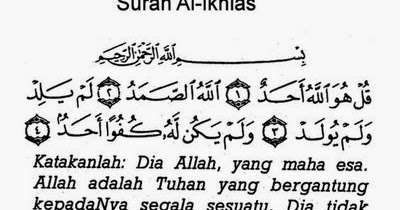 Surah Al-Ikhlas
بِسْمِ ٱللَّهِ ٱلرَّحْمَٰنِ ٱلرَّحِيمِ
قُلْ هُوَ ٱللَّهُ أَحَدٌ ١ ٱللَّهُ ٱلصَّمَدُ ٢ لَمْ يَلِدْ
وَلَمْ يُولَدْ ٣ وَلَمْ يَكُن لَّهُۥ كُفُوًا أَحَدٌۢ ٤
Katakanlah: Dia Allah, yang maha esa.
Allah adalah Tuhan yang bergantung
kepadaNya segala sesuatu. Dia tidak